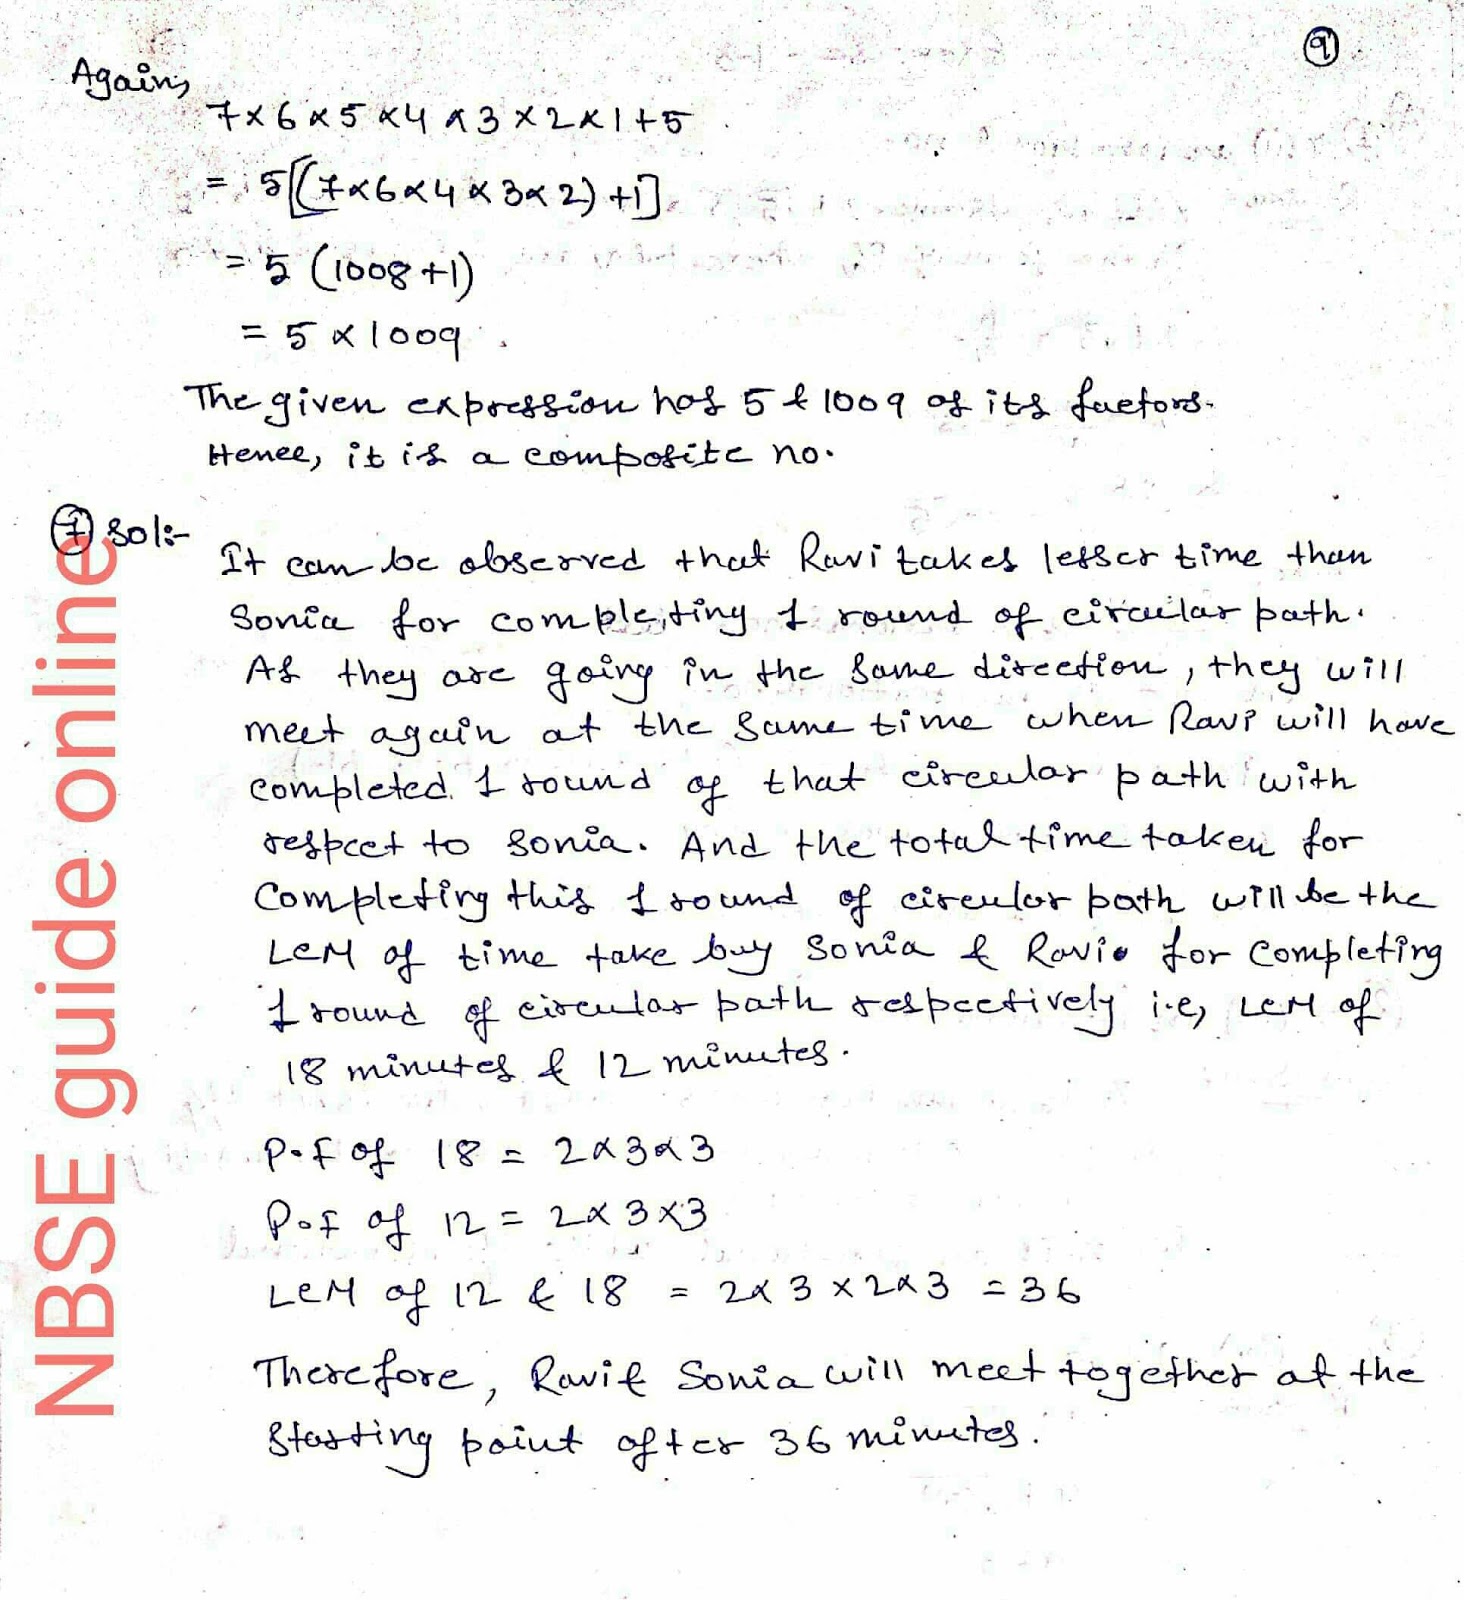 9
Again,
7×6×5×4×3×2×1+5
= 5[(7×6×4×3×2)+1]
= 5 (1008+1)
= 5×1009.
The given expression has 5 & 1009 of its factors.
Hence, it is a composite no.
7 Sol:-
It can be observed that Ravi takes lesser time than
Sonia for completing 1 round of circular path.
As they are going in the same direction, they will
meet again at the same time when Ravi will have
completed 1 round of that circular path with
respect to Sonia. And the total time taken for
Completing this 1 round of circular path will be the
LCM of time take buy Sonia & Ravi for Completing
1 round of circular path respectively i.e, LCM of
18 minutes & 12 minutes.
P.F of 18 = 2×3×3
P.F of 12 = 2×3×3
LCM of 12 & 18 = 2×3×2×3 = 36
Therefore, Ravi & Sonia will meet together at the
Starting point after 36 minutes.
NBSE guide online